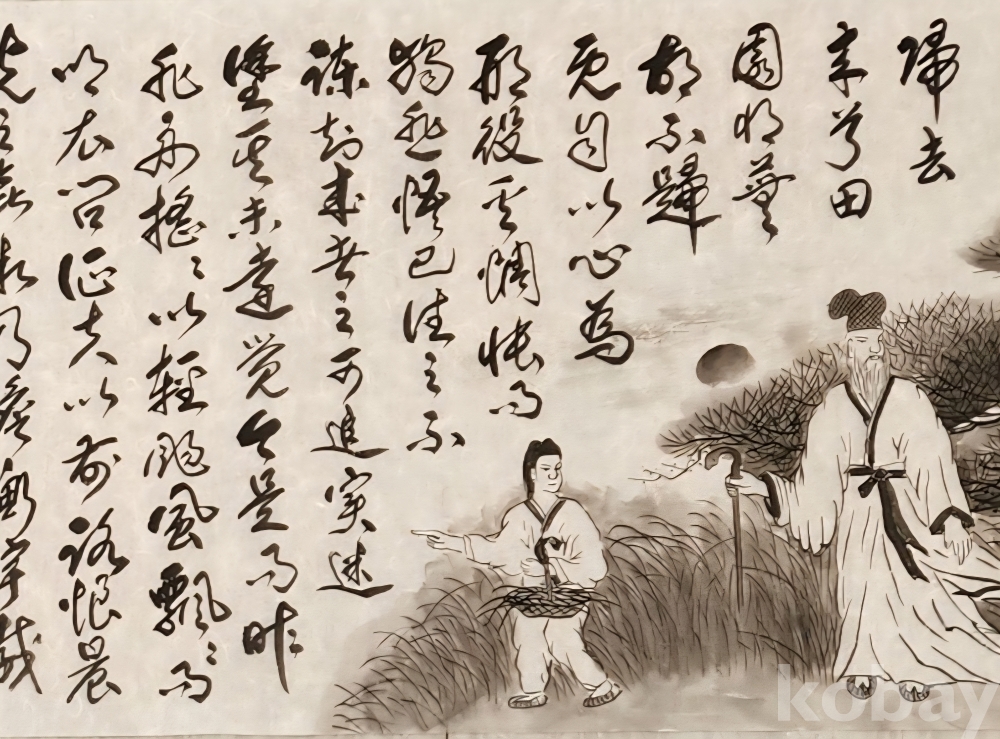 歸去
來兮田
園將蕪
胡不歸
既自以心為
形役奚惆悵而
獨悲悟已往之不
諫知來者之可追實迷
塗其未遠覺今是而昨
非舟搖々以輕颺風飄々而
吹衣問征夫以前路恨晨
光之熹微乃瞻衡宇載
kobay